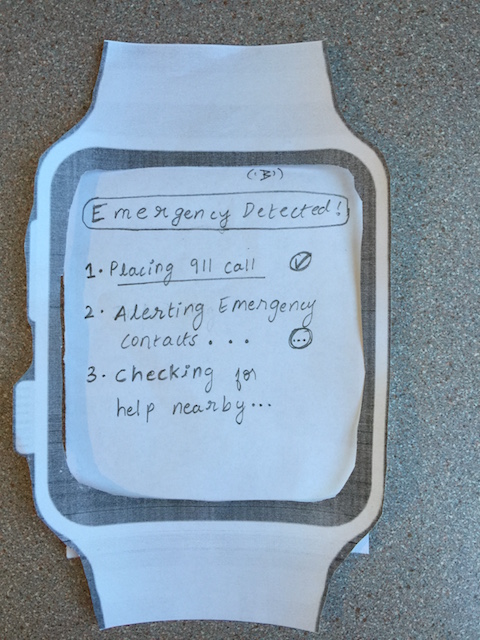 Emergency Detected!
1. Placing 911 call
2. Alerting Emergency
contacts...
3. checking for
help nearby...